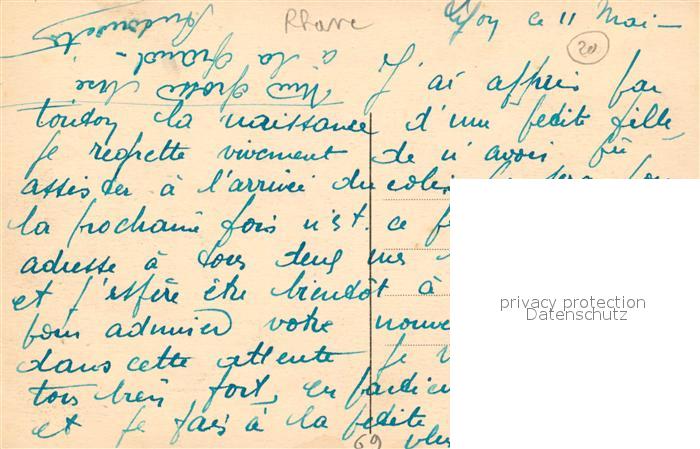 Rhone
Lyon ce 11 Mai
20
J'ai appris par
tonton la naissance d'une petite fille,
Je regrette vivement de n'avoir pû
assister à l'arrivée du colis
la prochaine fois n'est. ce
adresse à tous deux mes
et J'espère être bientôt à
pour admirer votre
dans cette attente Je
très bien fort, en
et Je fais à la petite
69
Une Grosse Bise
à la Grand-
privacy protection
Datenschutz